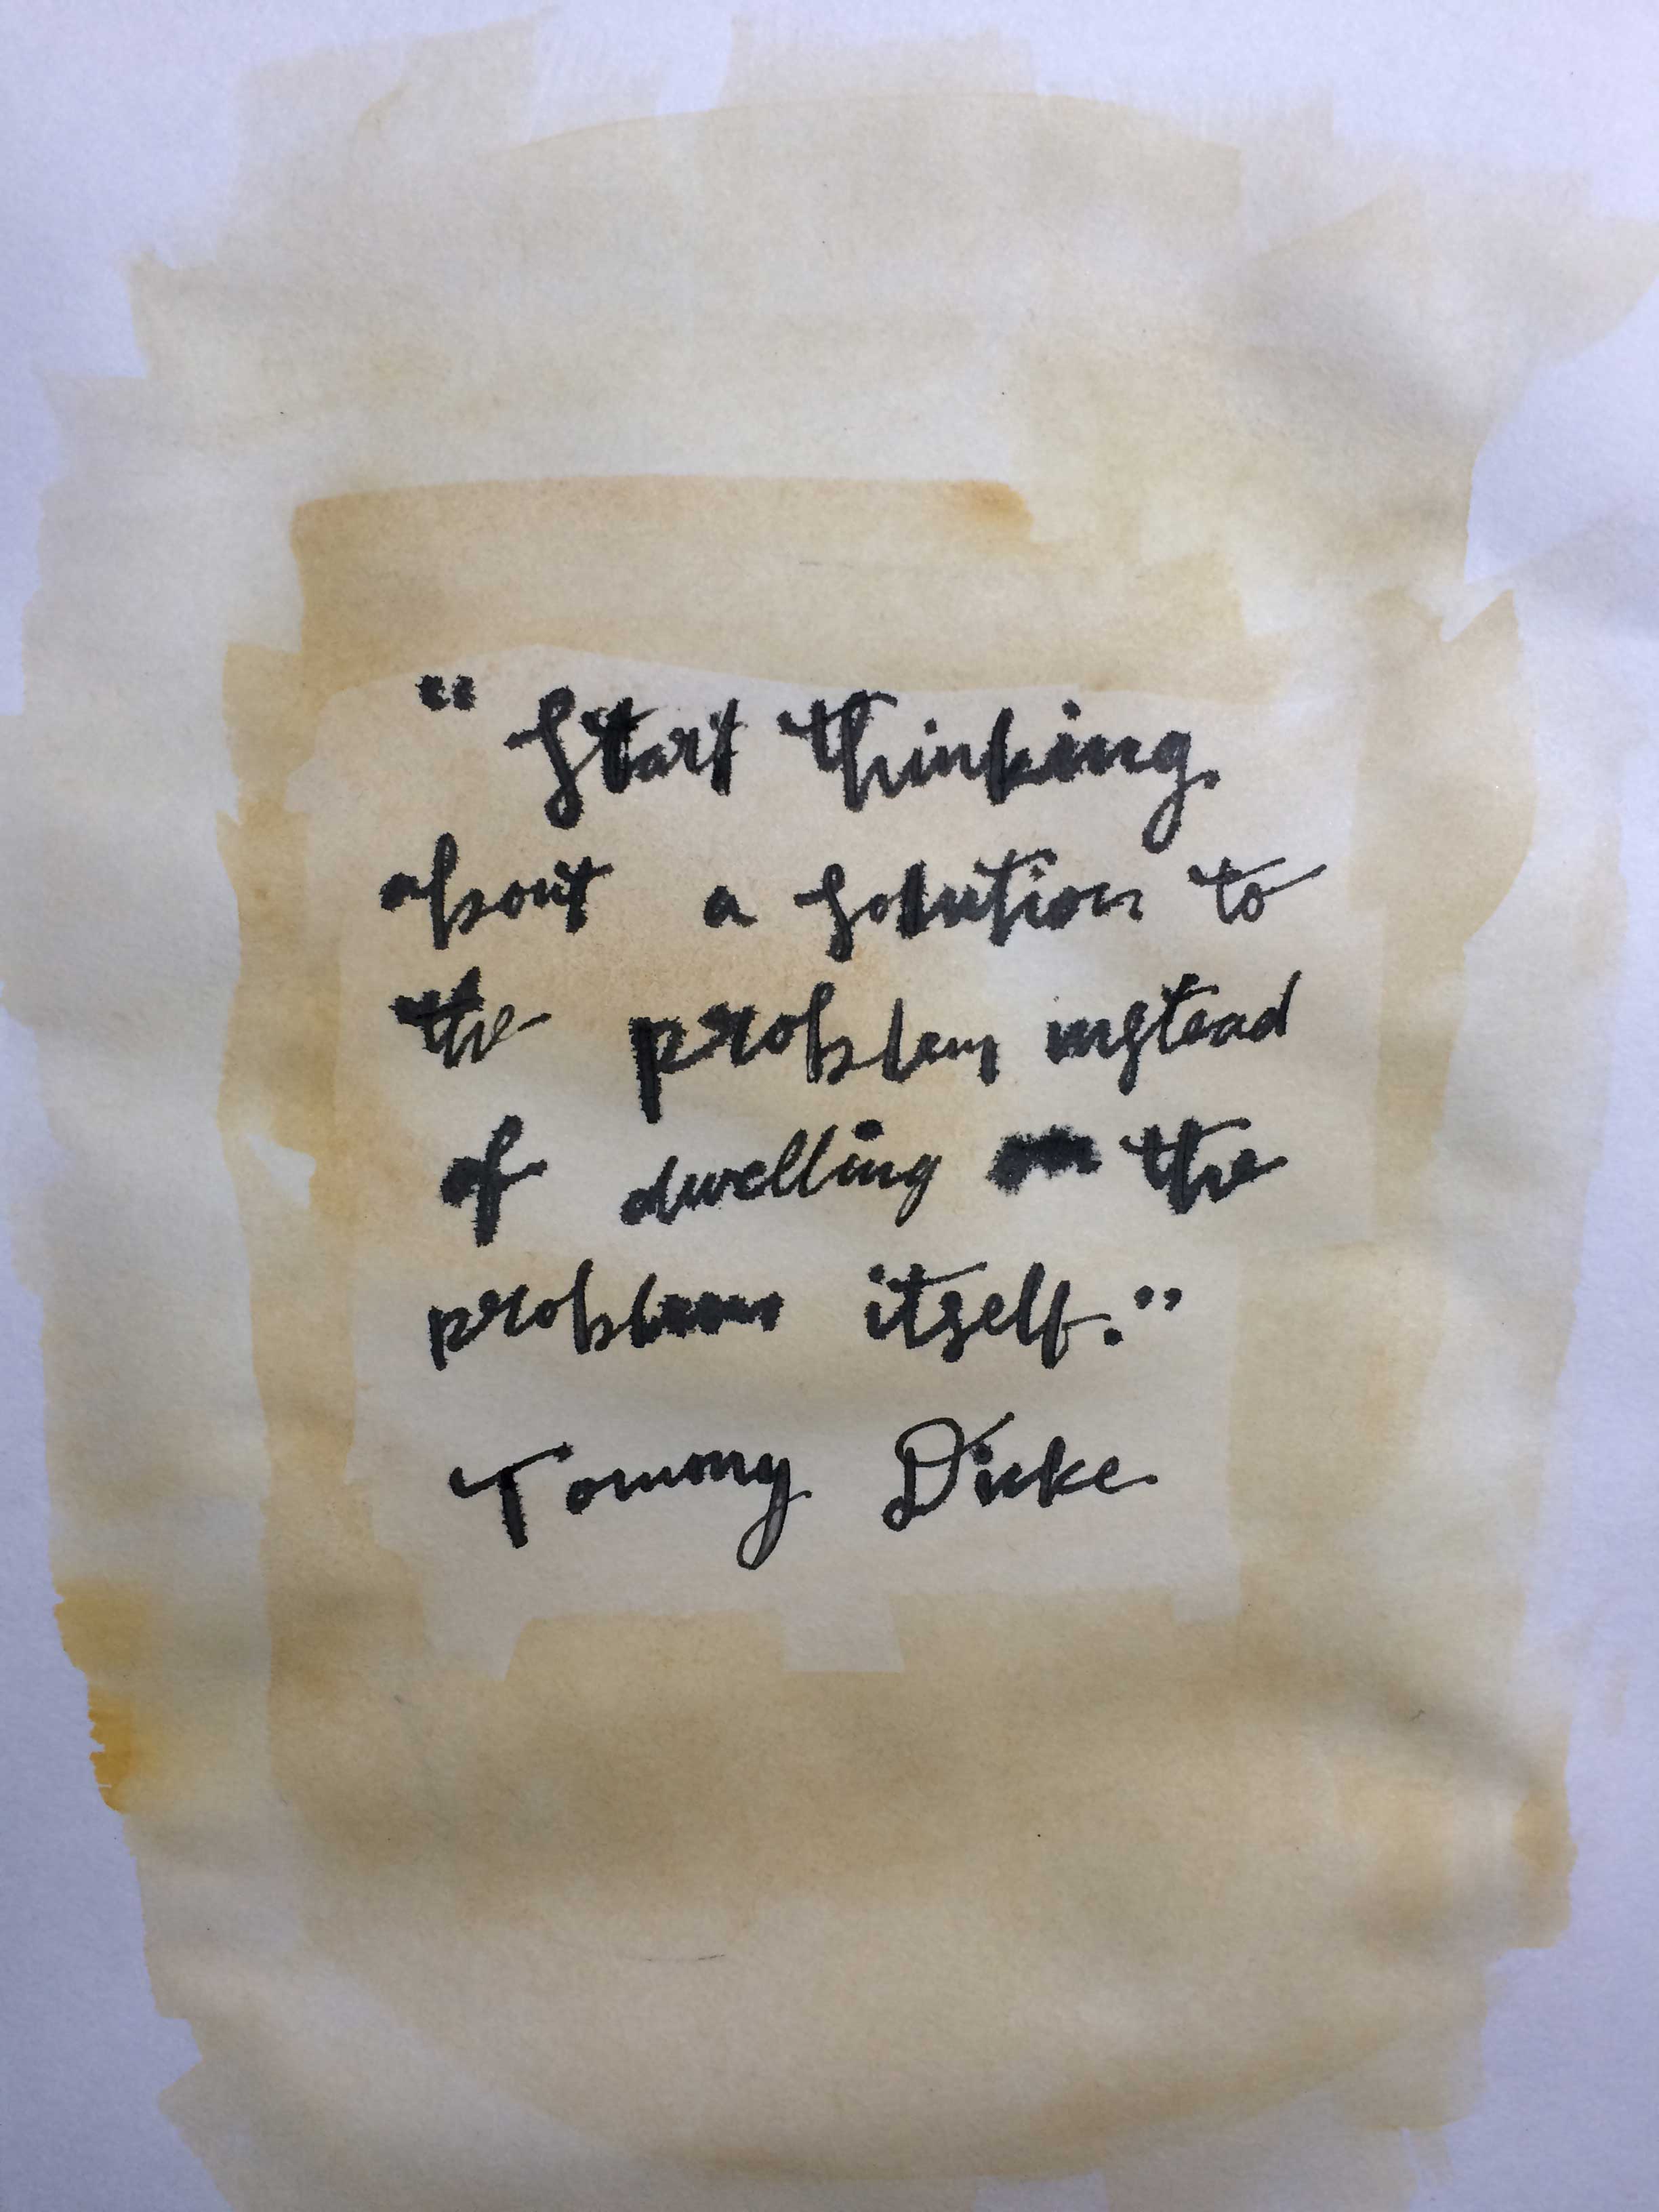 "Start thinking
about a solution to
the problem instead
of dwelling on the
problem itself."
Tommy Dicke